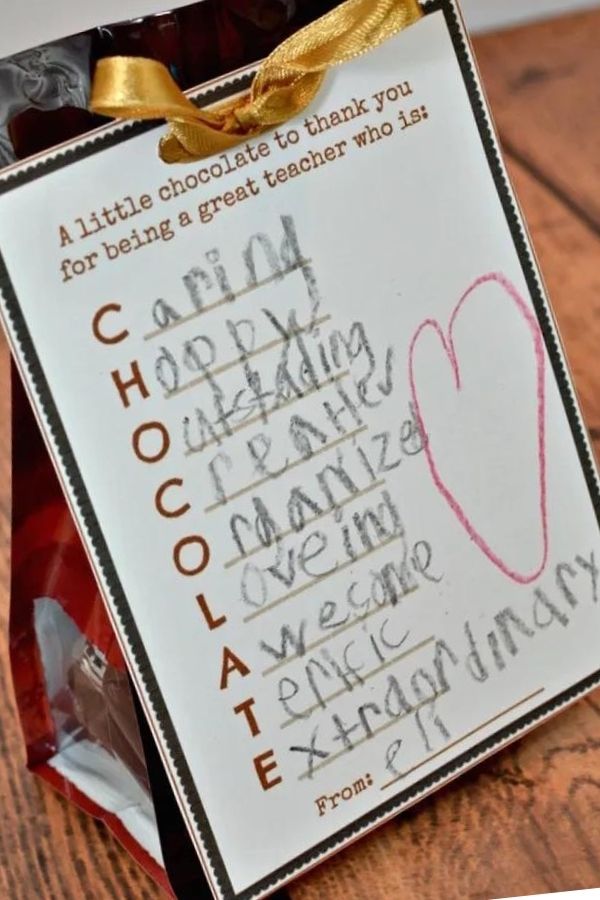 A little chocolate to thank you
for being a great teacher who is:
Caring
Happy
Outstading
Creatier
Organized
Loveing
Awesome
Terific
Extraordinary
From: eli